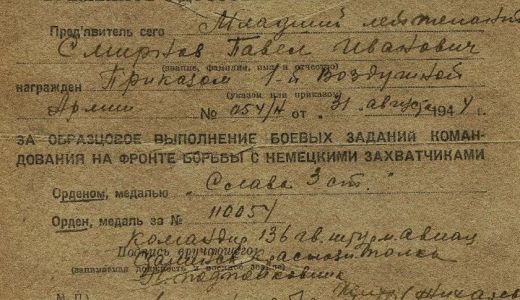 Пред'явитель сего Младший лейтенант
Смирнов Павел Иванович
(звание, фамилия, имя и отчество)
награжден Приказом 1-й Воздушной
(указом или приказом)
Армии № 054/н от "31" августа 1944 г.
ЗА ОБРАЗЦОВОЕ ВЫПОЛНЕНИЕ БОЕВЫХ ЗАДАНИЙ КОМАН-
ДОВАНИЯ НА ФРОНТЕ БОРЬБЫ С НЕМЕЦКИМИ ЗАХВАТЧИКАМИ
Орденом, медалью "Слава 3 ст."
Орден, медаль за № 110054
Командир 136 гв. штурм. авиац.
Подпись вручающего
полка
(занимаемая должность и воинское звание)
Подполковник
М. П.